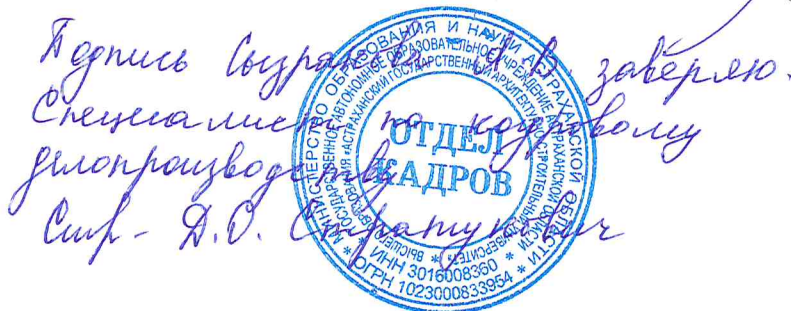 Подпись Сызрановой А.В. заверяю.
Специалист по кадровому
делопроизводству
Стр- Д.О. Страту
МИНИСТЕРСТВО ОБРАЗОВАНИЯ И НАУКИ АСТРАХАНСКОЙ ОБЛАСТИ
ГОСУДАРСТВЕННОЕ АВТОНОМНОЕ ОБРАЗОВАТЕЛЬНОЕ УЧРЕЖДЕНИЕ АСТРАХАНСКОЙ ОБЛАСТИ
ВЫСШЕГО ОБРАЗОВАНИЯ «АСТРАХАНСКИЙ ГОСУДАРСТВЕННЫЙ АРХИТЕКТУРНО-СТРОИТЕЛЬНЫЙ УНИВЕРСИТЕТ»
ОТДЕЛ
КАДРОВ
* ИНН 3016008360 *
* ОГРН 1023000833954 *